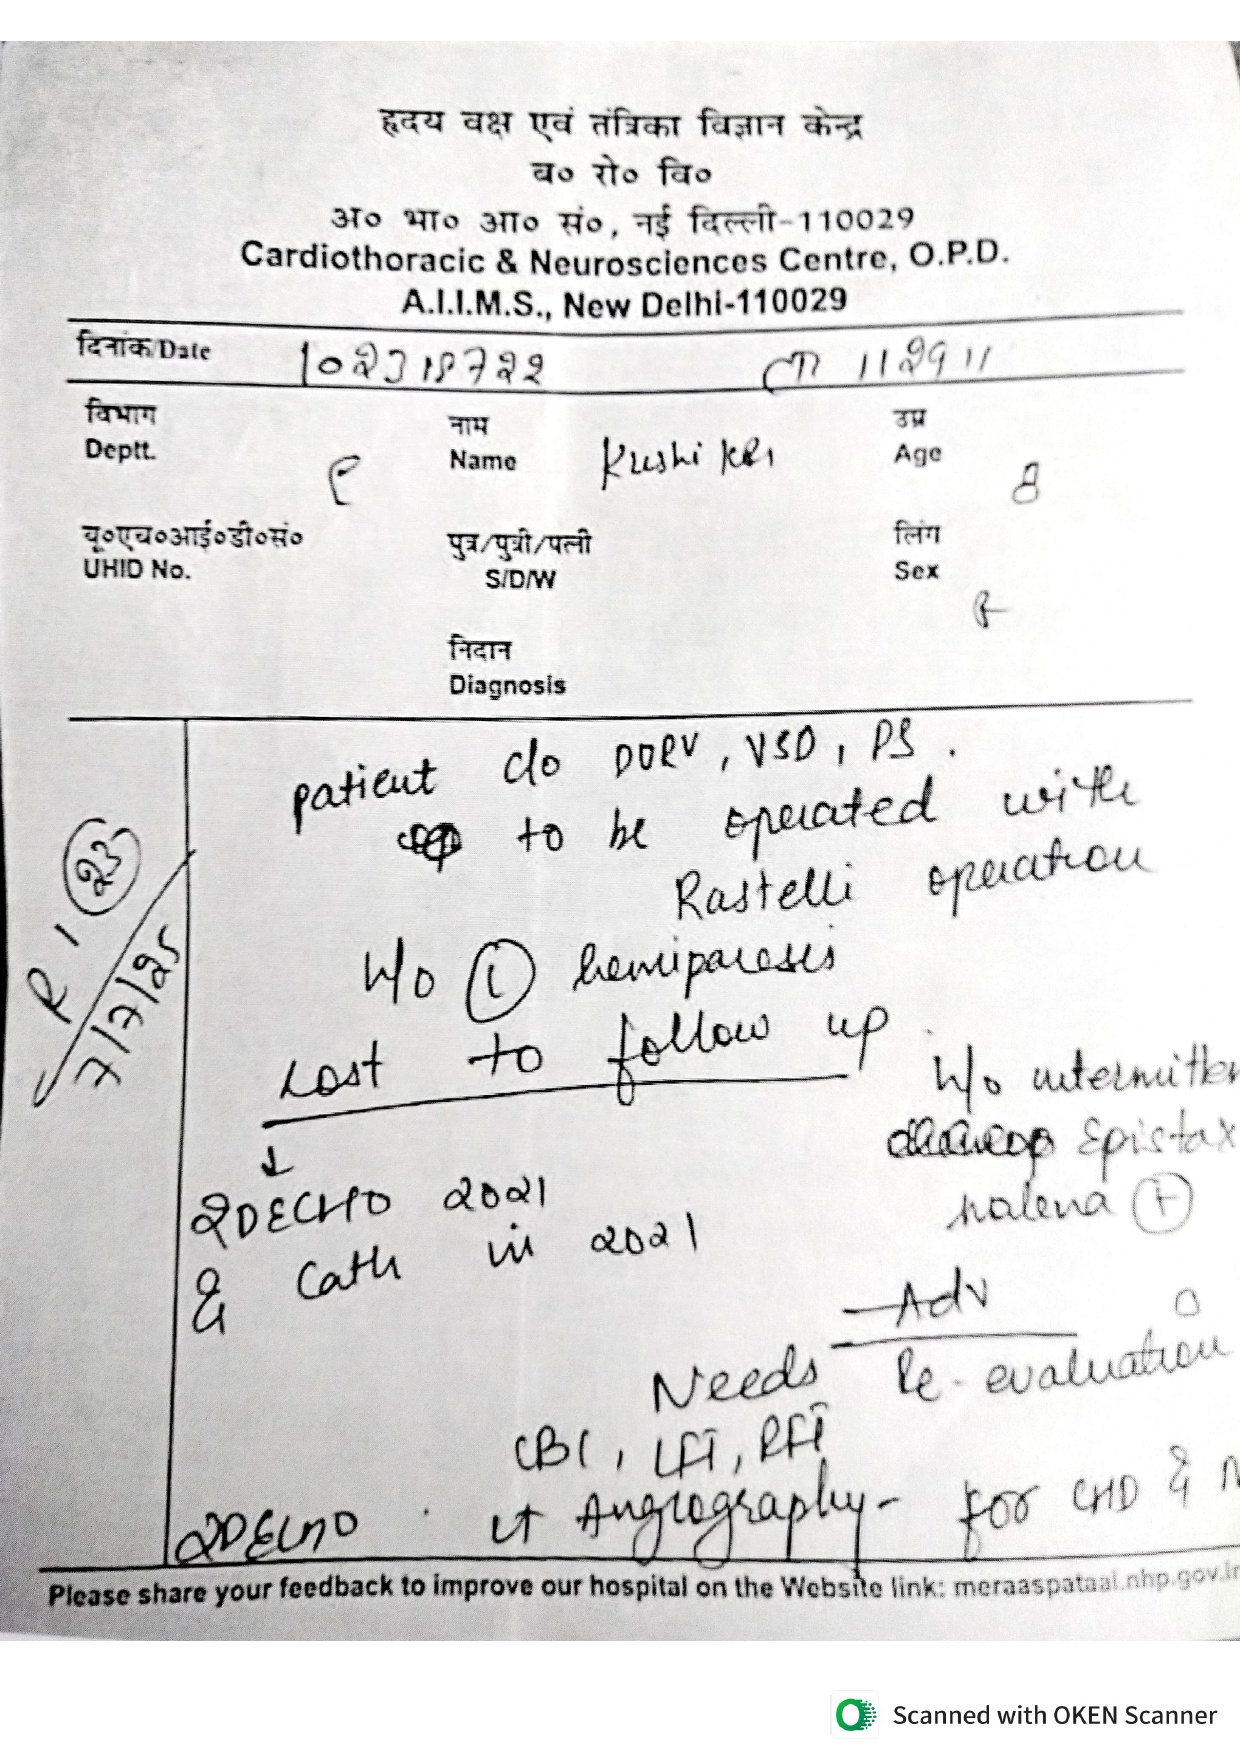 हृदय वक्ष एवं तंत्रिका विज्ञान केन्द्र
ब० रो० वि०
अ० भा० आ० सं०, नई दिल्ली-110029
Cardiothoracic & Neurosciences Centre, O.P.D.
A.I.I.M.S., New Delhi-110029
दिनांक/Date
विभाग
Deptt.
नाम
Name Kushi
उम्र
Age 8
यू०एच०आई०डी०सं०
UHID No.
पुत्र/पुत्री/पत्नी
S/D/W
लिंग
Sex F
निदान
Diagnosis
patient c/o DORV, VSD, PS.
to be operated with
Rastelli operation
H/o (L) hemiparesis
Lost to follow up
H/o intermitten
Epistax
malena (+)
↓
2DECHO 2021
& Cath in 2021
Adv
Needs Re-evaluation
CBC, LFT, RFT
2DECHO CT Angiography - for CHD &
R 1 (23)
7/7/25
Please share your feedback to improve our hospital on the Website link: meraaspataal.nhp.gov.in
Scanned with OKEN Scanner